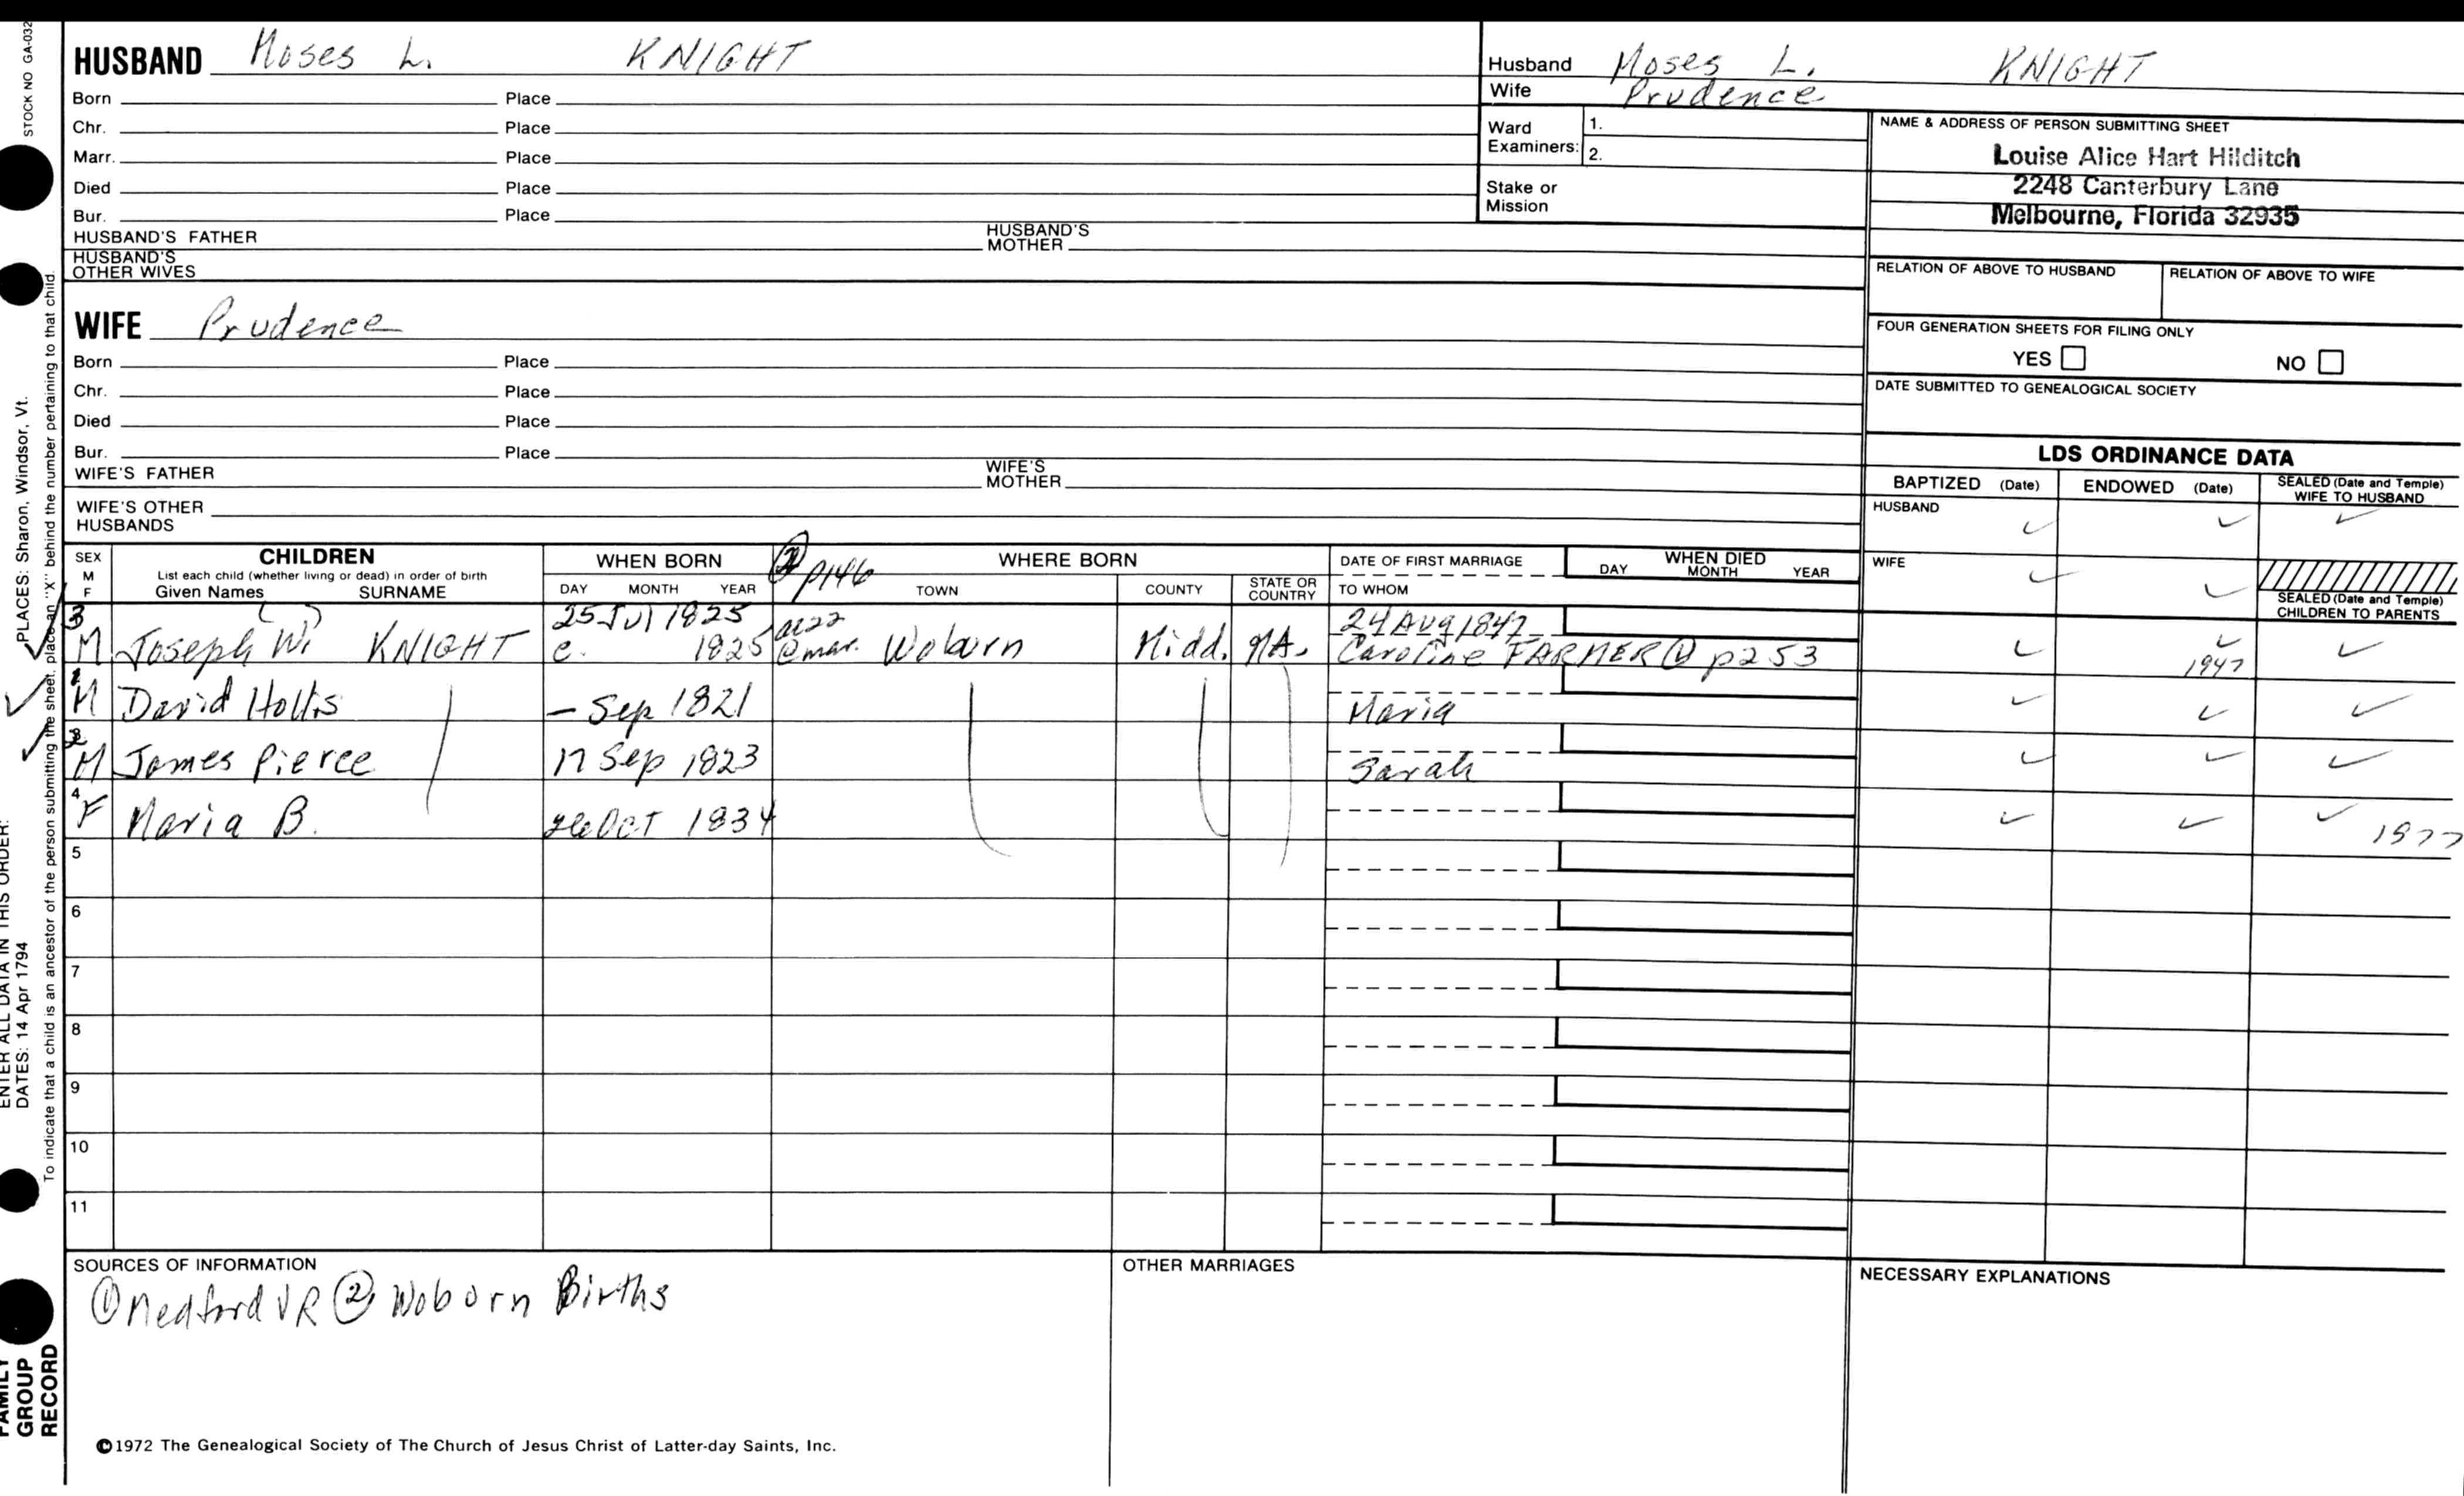 HUSBAND Moses L. KNIGHT
Born Place
Chr. Place
Marr. Place
Died Place
Bur. Place
HUSBAND'S FATHER HUSBAND'S MOTHER
HUSBAND'S OTHER WIVES
WIFE Prudence
Born Place
Chr. Place
Died Place
Bur. Place
WIFE'S FATHER WIFE'S MOTHER
WIFE'S OTHER HUSBANDS
Husband Moses L. KNIGHT
Wife Prudence
Ward Examiners: 1.
2.
Stake or Mission
NAME & ADDRESS OF PERSON SUBMITTING SHEET
Louise Alice Hart Hilditch
2248 Canterbury Lane
Melbourne, Florida 32935
RELATION OF ABOVE TO HUSBAND RELATION OF ABOVE TO WIFE
FOUR GENERATION SHEETS FOR FILING ONLY
YES NO
DATE SUBMITTED TO GENEALOGICAL SOCIETY
LDS ORDINANCE DATA
BAPTIZED (Date) ENDOWED (Date) SEALED (Date and Temple) WIFE TO HUSBAND
HUSBAND ✓ ✓ ✓
WIFE ✓ ✓
SEALED (Date and Temple) CHILDREN TO PARENTS
SEX M F CHILDREN WHEN BORN ② p146 WHERE BORN DATE OF FIRST MARRIAGE WHEN DIED
List each child (whether living or dead) in order of birth
Given Names SURNAME DAY MONTH YEAR TOWN COUNTY STATE OR COUNTRY TO WHOM DAY MONTH YEAR
3 25 Jul 1825 ae22 24 Aug 1847
M Joseph W. KNIGHT c. 1825 @mar. Woburn Midd. MA. Caroline FARMER ① p253 ✓ ✓ 1947 ✓
1 M David Hollis - Sep 1821 Maria ✓ ✓ ✓
2 M James Pierce 17 Sep 1823 Sarah ✓ ✓ ✓
4 F Maria B. 26 Oct 1834 ✓ ✓ ✓ 1977
5
6
7
8
9
10
11
SOURCES OF INFORMATION
① Medford VR ② Woburn Births
OTHER MARRIAGES
NECESSARY EXPLANATIONS
©1972 The Genealogical Society of The Church of Jesus Christ of Latter-day Saints, Inc.
STOCK NO GA-032
PLACES: Sharon, Windsor, Vt.
To indicate that a child is an ancestor of the person submitting the sheet, place an "X" behind the number pertaining to that child.
ENTER ALL DATA IN THIS ORDER:
DATES: 14 Apr 1794
FAMILY GROUP RECORD